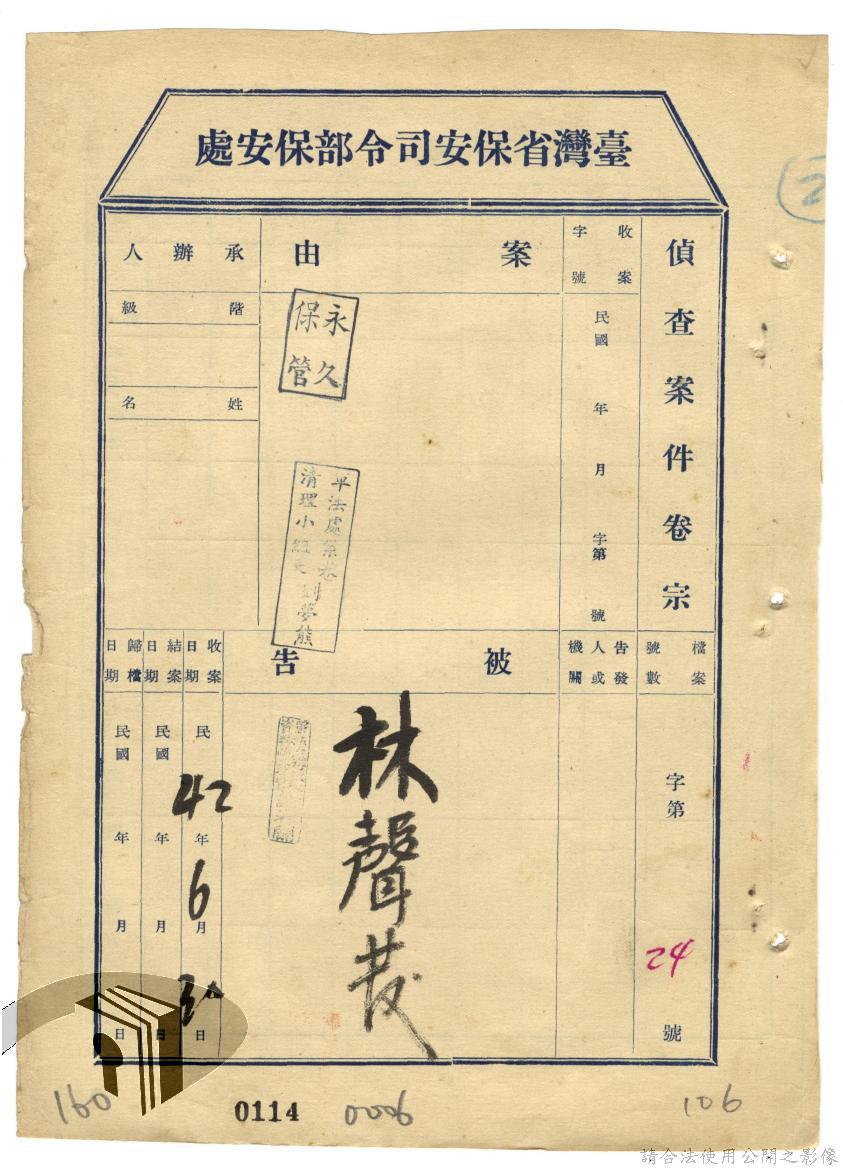 臺灣省保安司令部保安處
偵查案件卷宗
收案
字號
民國 年 月 字第 號
案由
承辦人
階級
姓名
永久
保管
軍法處案卷
清理小組 劉夢熊
檔案
號數
字第 24 號
告發
人或
機關
被告
林聲發
收案
日期
民 42 年 6 月 30 日
結案
日期
民國 年 月 日
歸檔
日期
民國 年 月 日
2
160
0114
0006
106
請合法使用公開之影像